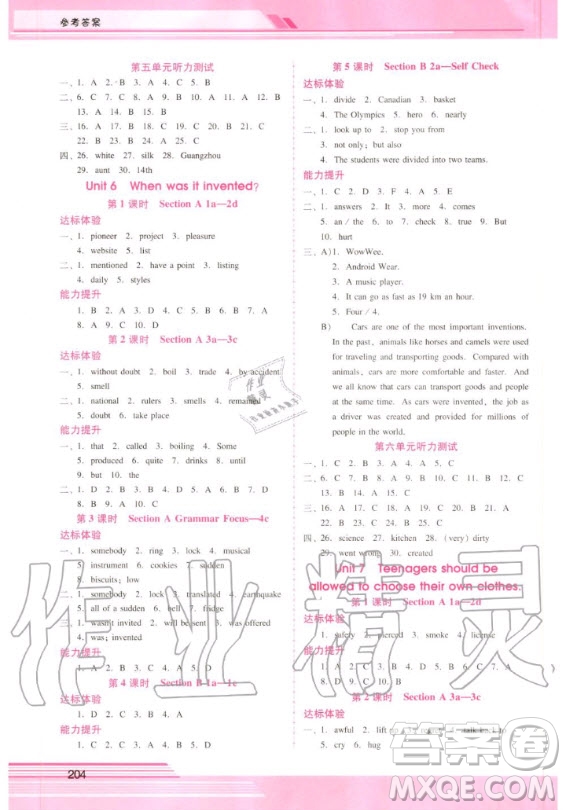 参考答案
第五单元听力测试
一、1. A 2. B 3. A 4. C 5. B
二、6. C 7. C 8. B 9. A 10. A 11. A 12. B
13. A 14. B 15. B
三、16. C 17. A 18. C 19. C 20. A 21. A
22. B 23. C 24. C 25. B
四、26. white 27. silk 28. Guangzhou
29. aunt 30. 14th
Unit 6 When was it invented?
第1课时 Section A 1a—2d
达标体验
一、1. pioneer 2. project 3. pleasure
4. website 5. list
二、1. mentioned 2. have a point 3. listing
4. daily 5. styles
能力提升
1. B 2. A 3. D 4. C 5. B 6. D 7. B
8. A 9. C 10. D
第2课时 Section A 3a—3c
达标体验
一、1. without doubt 2. boil 3. trade 4. by accident
5. smell
二、1. national 2. rulers 3. smells 4. remained
5. doubt 6. take place
能力提升
一、1. that 2. called 3. boiling 4. Some
5. produced 6. quite 7. drinks 8. without
9. but 10. the
二、1. D 2. B 3. C 4. D 5. B 6. D 7. D
8. B 9. A 10. C
第3课时 Section A Grammar Focus—4c
达标体验
一、1. somebody 2. ring 3. lock 4. musical
5. instrument 6. cookies 7. sudden
8. biscuits; low
二、1. somebody 2. is locked 3. translated 4. earthquake
5. all of sudden 6. bell 7. fridge
三、1. wasn't invited 2. will be sent 3. was offered
4. 5. was; invented
能力提升
1. A 2. B 3. C 4. D 5. B 6. D
第4课时 Section B 1a—1e
达标体验
1. D 2. D 3. A 4. C 5. A
能力提升
1. B 2. C 3. C 4. A 5. B
204
第5课时 Section B 2a—Self Check
达标体验
一、1. divide 2. Canadian 3. basket
4. The Olympics 5. hero 6. nearly
二、1. look up to 2. stop you from
3. not only; but also
4. The students were divided into two teams.
能力提升
一、1. C 2. D 3. D 4. A 5. B
二、1. answers 2. It 3. more 4. comes
5. an / the 6. to 7. check 8. true 9. But
10. hurt
三、A) 1. WowWee.
2. Android Wear.
3. A music player.
4. It can go as fast as 19 km an hour.
5. Four / 4.
B) Cars are one of the most important inventions.
In the past, animals like horses and camels were
used for traveling and transporting goods. Compared with
animals, cars are more comfortable and faster. And
we all know that cars can transport goods and people
at the same time. As cars were invented, the job as
a driver was created and provided for millions of
people to work for.
第六单元听力测试
一、1. C 2. B 3. A 4. A 5. C
二、6. C 7. B 8. C 9. A 10. B 11. A 12. C
13. B 14. A 15. C
三、16. C 17. A 18. A 19. A 20. B 21. A
22. B 23. C 24. C 25. C
四、26. science 27. kitchen 28. (very) dirty
29. went wrong 30. created
Unit 7 Teenagers should be
allowed to choose their own clothes.
第1课时 Section A 1a—2d
达标体验
一、1. safety 2. pierced 3. smoke 4. license
能力提升
第2课时 Section A 3a—3c
达标体验
一、1. awful 2. lift
5. cry 6. hug
作业精灵
答案圈
MXQE.COM